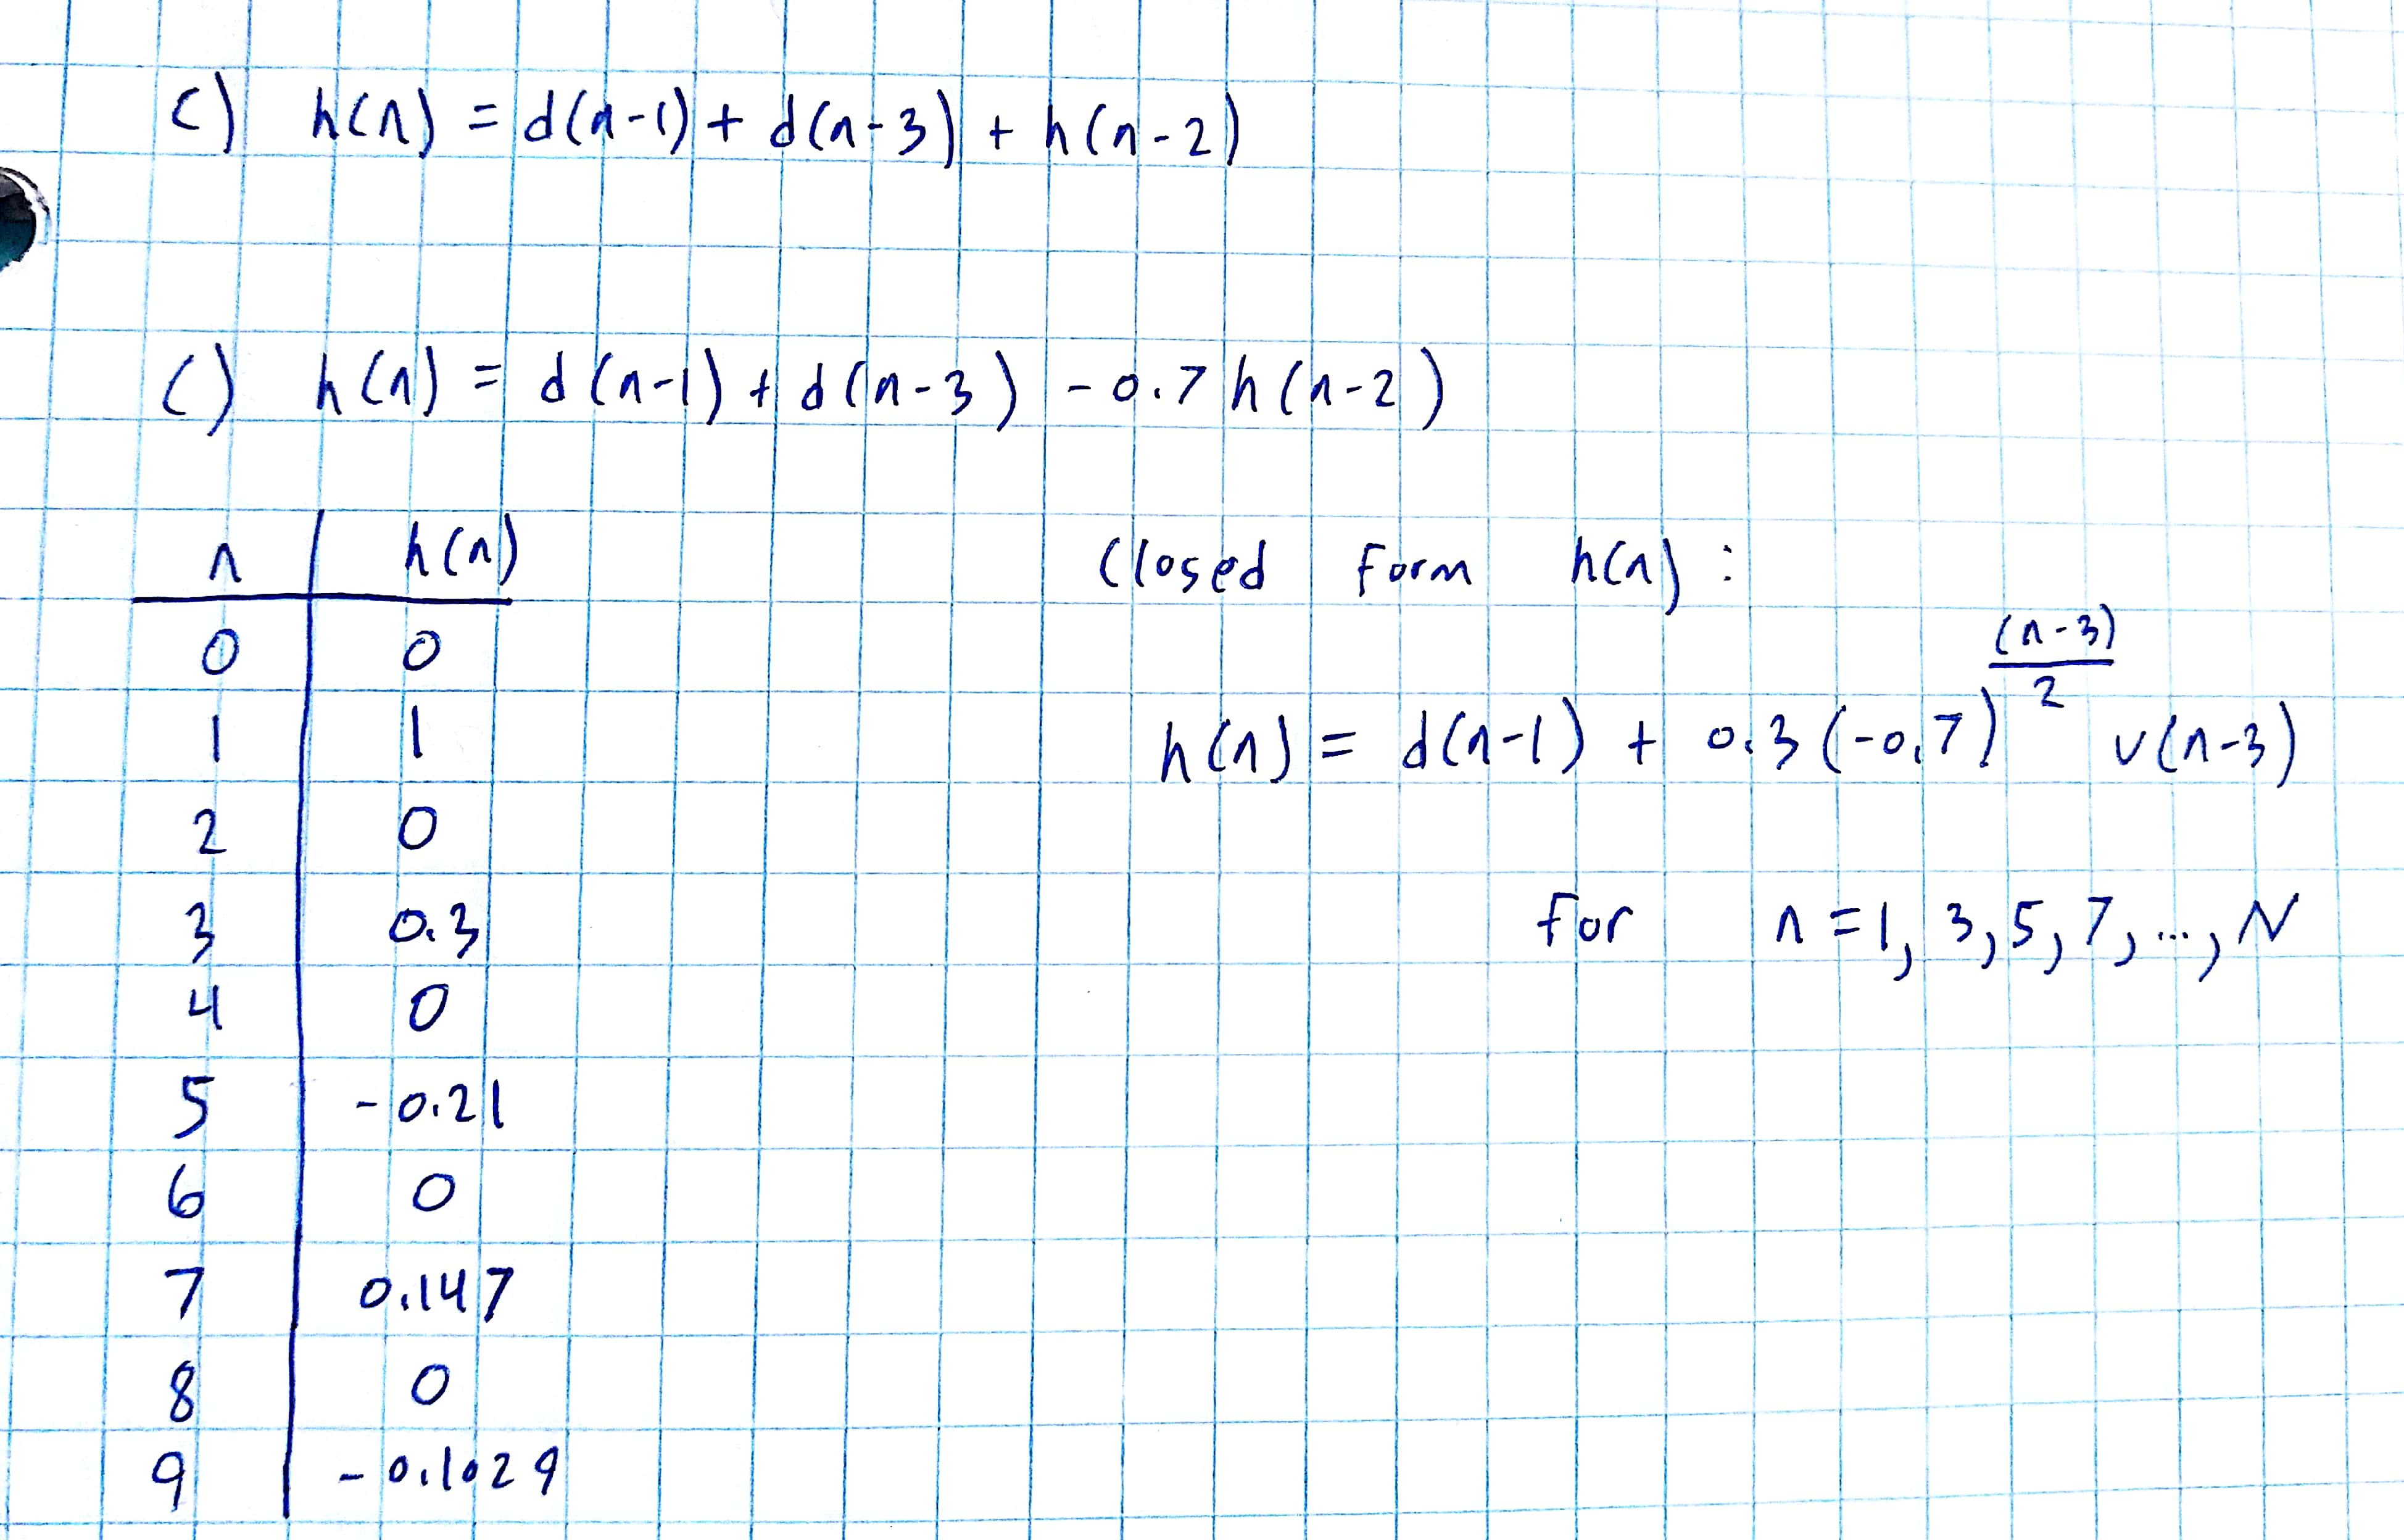 c) h(n) = d(n-1) + d(n-3) + h(n-2)
c) h(n) = d(n-1) + d(n-3) - 0.7 h(n-2)
n h(n)
0 0
1 1
2 0
3 0.3
4 0
5 -0.21
6 0
7 0.147
8 0
9 -0.1029
Closed form h(n) :
h(n) = d(n-1) + 0.3 (-0.7)^((n-3)/2) u(n-3)
for n = 1, 3, 5, 7, ..., N